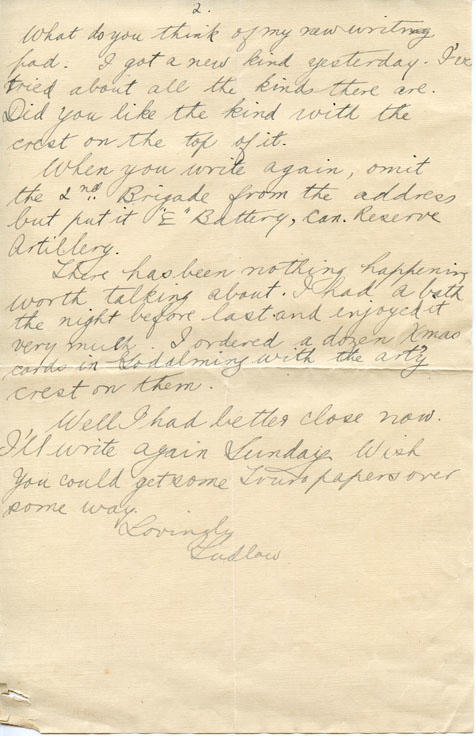 2.
What do you think of my new writing
pad. I got a new kind yesterday. I've
tried about all the kinds there are.
Did you like the kind with the
crest on the top of it.
When you write again, omit
the 2nd. Brigade from the address
but put it "E" Battery, Can. Reserve
Artillery.
There has been nothing happening
worth talking about. I had a bath
the night before last and enjoyed it
very much. I ordered a dozen Xmas
cards in Godalming with the art'y
crest on them.
Well I had better close now.
I'll write again Sunday. Wish
you could get some papers over
some way.
Lovingly
Ludlow